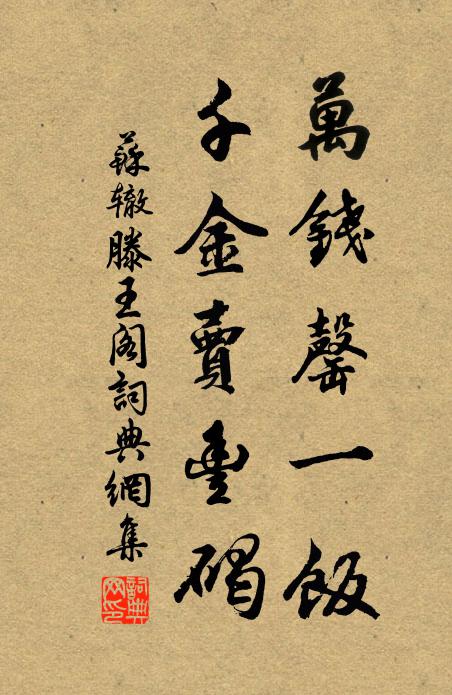 萬錢罄一飯
千金賣豐碣
蘇轍滕王閣詞典網集
詞典網印